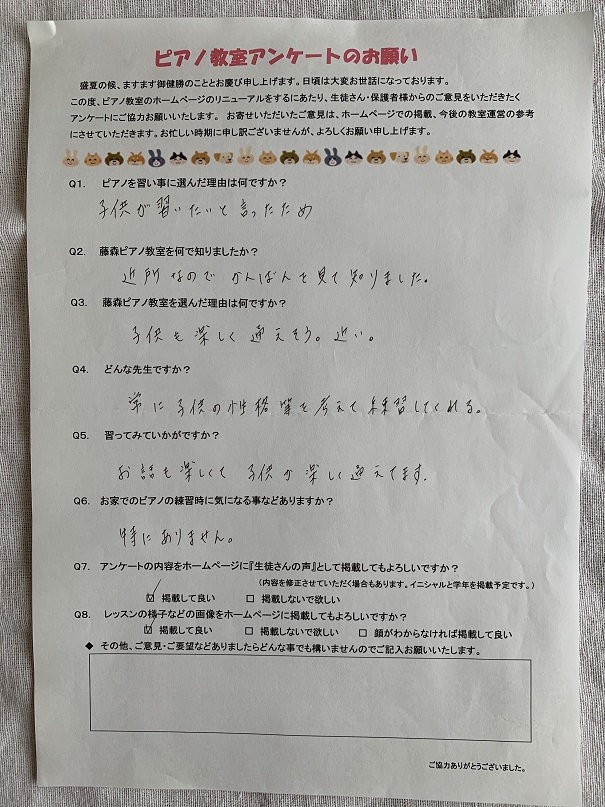 ピアノ教室アンケートのお願い
盛夏の候、ますます御健勝のこととお慶び申し上げます。日頃は大変お世話になっております。
この度、ピアノ教室のホームページのリニューアルをするにあたり、生徒さん・保護者様からのご意見をいただきたく
アンケートにご協力お願いいたします。 お寄せいただいたご意見は、ホームページでの掲載、今後の教室運営の参考
にさせていただきます。お忙しい時期に申し訳ございませんが、よろしくお願い申し上げます。
Q1. ピアノを習い事に選んだ理由は何ですか?
子供が習いたいと言ったため
Q2. 藤森ピアノ教室を何で知りましたか?
近所なので かんばんを見て知りました。
Q3. 藤森ピアノ教室を選んだ理由は何ですか?
子供も楽しく通えそう。近い。
Q4. どんな先生ですか?
常に子供の性格等を考えて練習してくれる。
Q5. 習ってみていかがですか?
お話も楽しくて 子供が楽しく通えてます.
Q6. お家でのピアノの練習時に気になる事などありますか?
特にありません。
Q7. アンケートの内容をホームページに『生徒さんの声』として掲載してもよろしいですか?
(内容を修正させていただく場合もあります。イニシャルと学年を掲載予定です。)
☑ 掲載して良い □ 掲載しないで欲しい
Q8. レッスンの様子などの画像をホームページに掲載してもよろしいですか?
☑ 掲載して良い □ 掲載しないで欲しい □ 顔がわからなければ掲載して良い
◆ その他、ご意見・ご要望などありましたらどんな事でも構いませんのでご記入お願いいたします。
ご協力ありがとうございました。